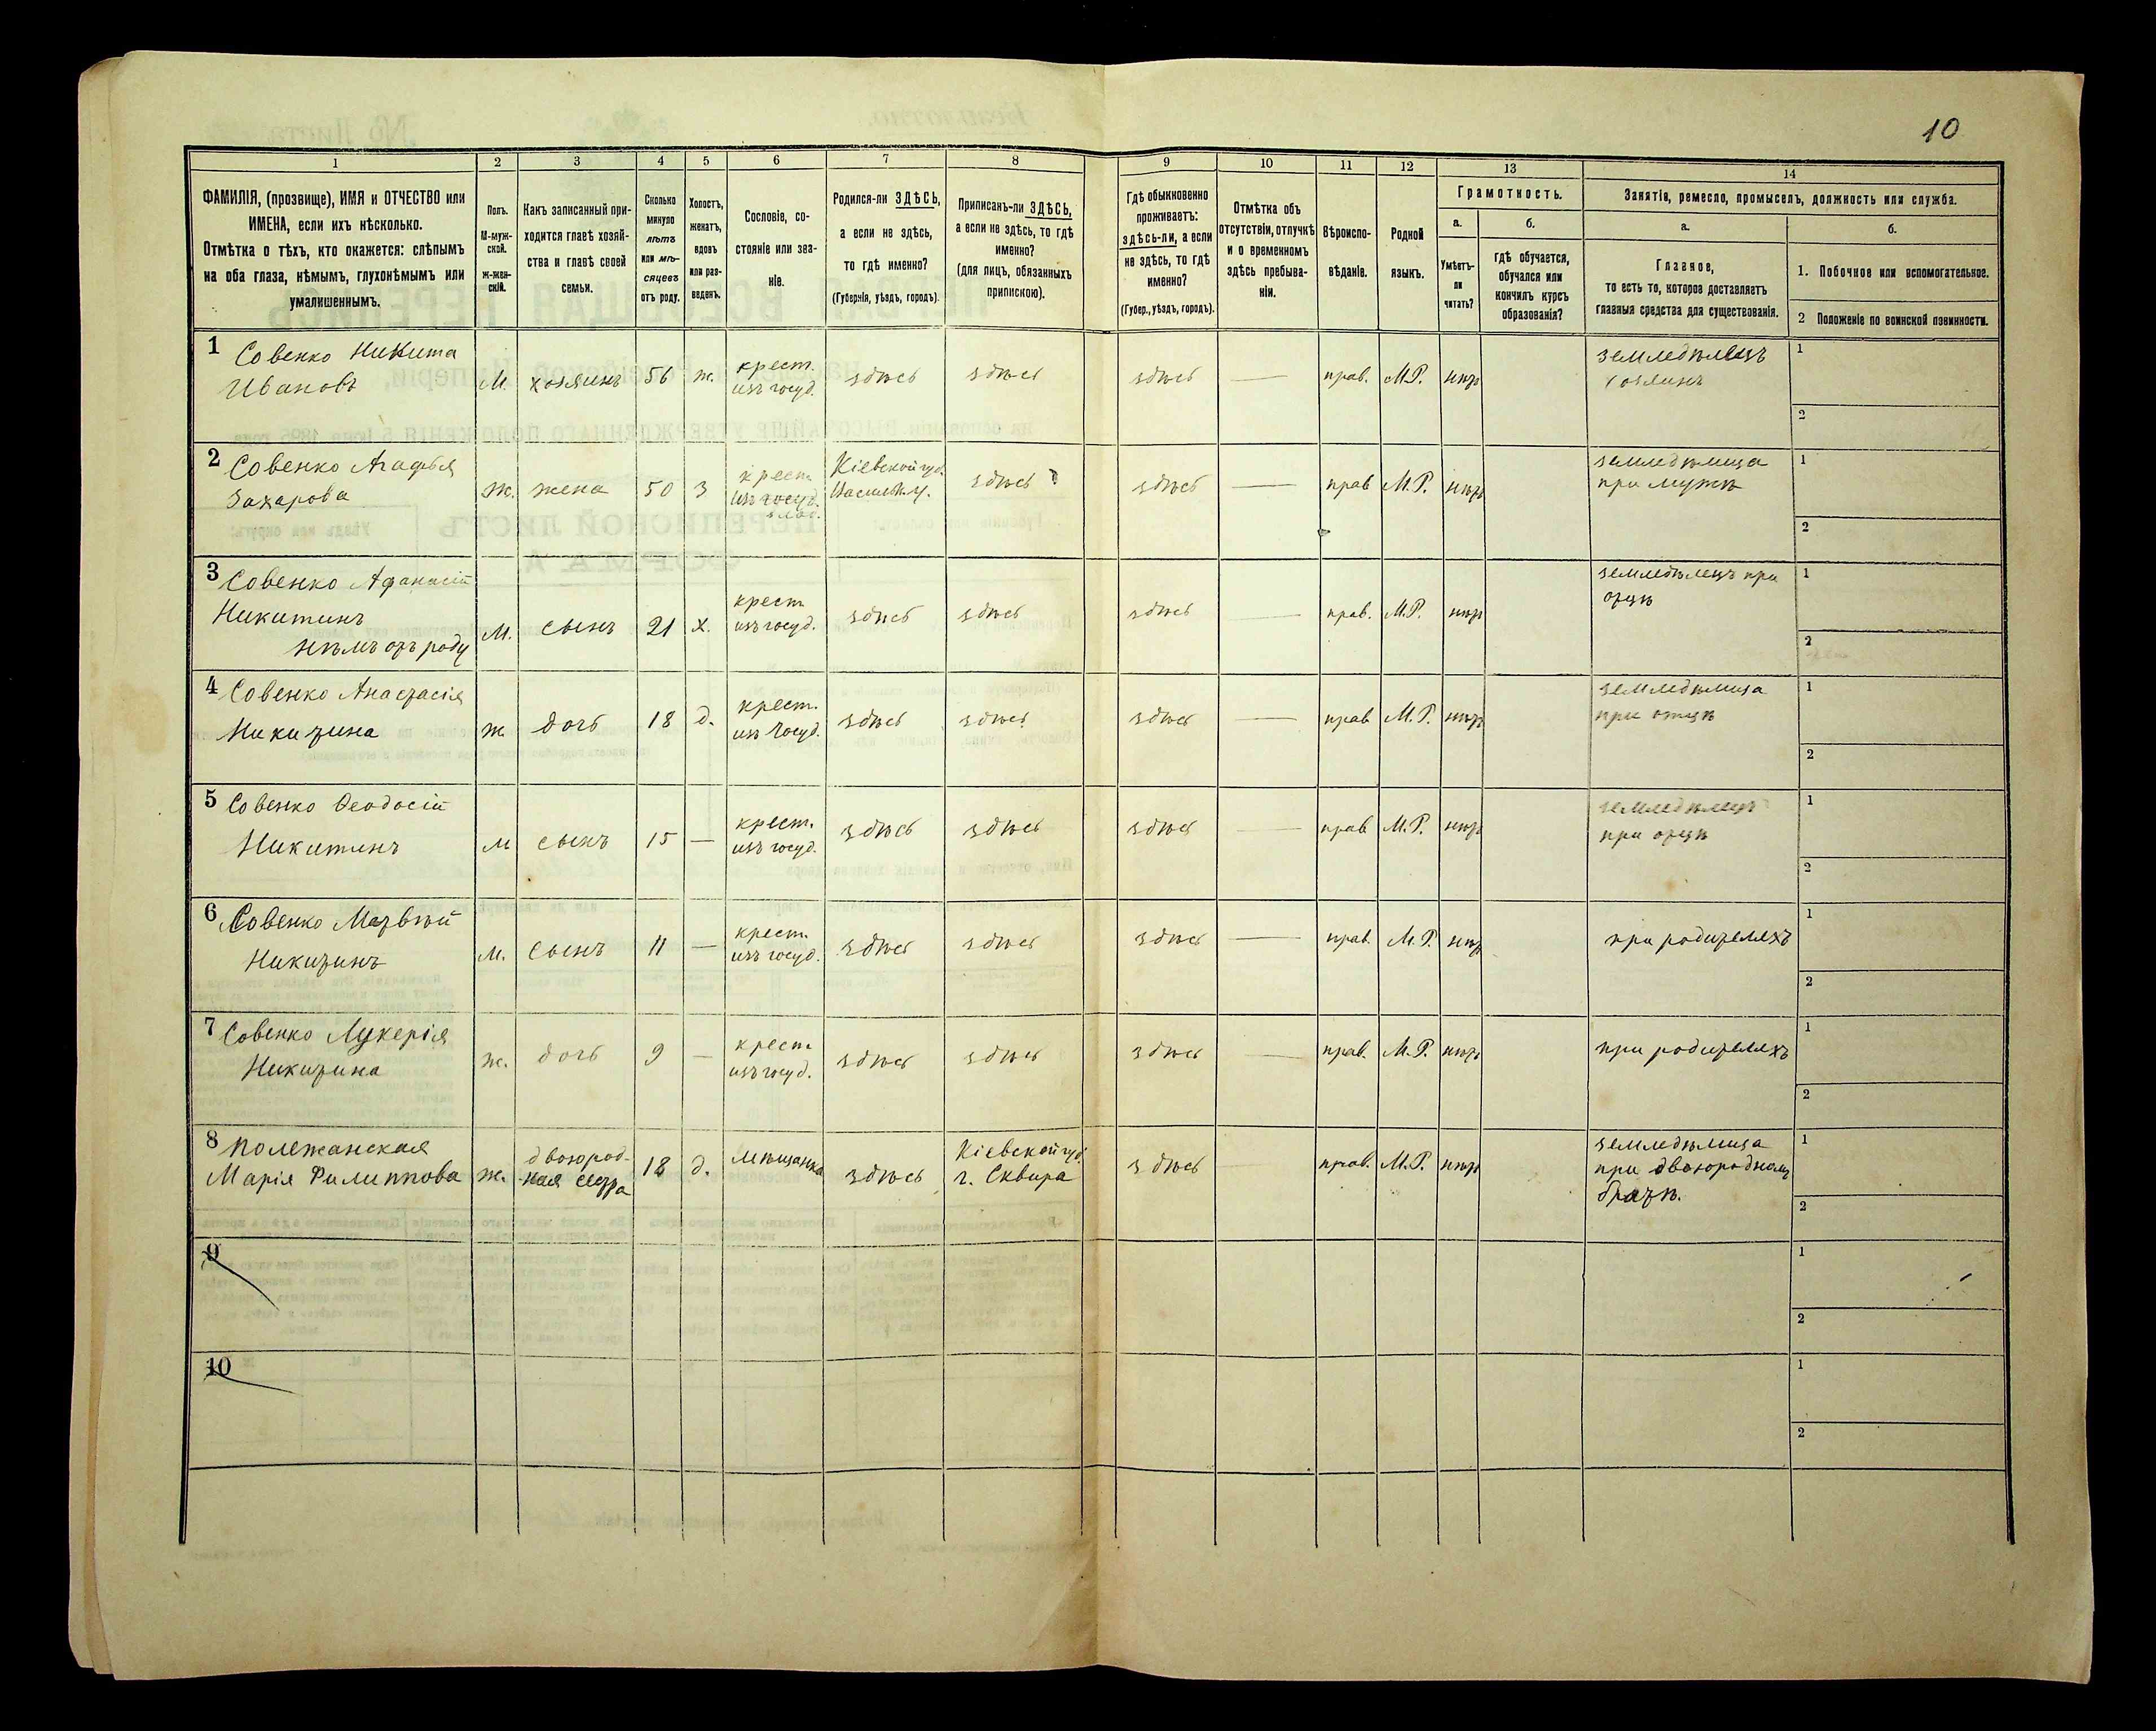 10
1 2 3 4 5 6 7 8 9 10 11 12 13 14
ФАМИЛІЯ, (прозвище), ИМЯ и ОТЧЕСТВО или
ИМЕНА, если ихъ нѣсколько.
Отмѣтка о тѣхъ, кто окажется: слѣпымъ
на оба глаза, нѣмымъ, глухонѣмымъ или
умалишеннымъ.
Полъ.
М-муж-
ской.
ж-жен-
скій.
Какъ записанный при-
ходится главѣ хозяй-
ства и главѣ своей
семьи.
Сколько
минуло
лѣтъ
или мѣ-
сяцевъ
отъ роду.
Холостъ,
женатъ,
вдовъ
или раз-
веденъ.
Сословіе, со-
стояніе или зва-
ніе.
Родился-ли ЗДѢСЬ,
а если не здѣсь,
то гдѣ именно?
(Губернія, уѣздъ, городъ).
Приписанъ-ли ЗДѢСЬ,
а если не здѣсь, то гдѣ
именно?
(для лицъ, обязанныхъ
припискою).
Гдѣ обыкновенно
проживаетъ:
здѣсь-ли, а если
не здѣсь, то гдѣ
именно?
(Губер., уѣздъ, городъ).
Отмѣтка объ
отсутствіи, отлучкѣ
и о временномъ
здѣсь пребыва-
ніи.
Вѣроиспо-
вѣданіе.
Родной
языкъ.
Грамотность.
а.
Умѣетъ-
ли
читать?
б.
гдѣ обучается,
обучался или
кончилъ курсъ
образованія?
Занятіе, ремесло, промыселъ, должность или служба.
а.
Главное,
то есть то, которое доставляетъ
главныя средства для существованія.
б.
1. Побочное или вспомогательное.
2 Положеніе по воинской повинности.
1 Совенко Никита
Ивановъ
М. хозяинъ 56 ж. крест.
изъ госуд.
здѣсь здѣсь здѣсь — прав. М.Р. нѣтъ
земледѣлецъ
хозяинъ
1
2
2 Совенко Агафья
Захарова
ж. жена 50 з крест.
изъ госуд.
Кіевской губ.
Васильк. у.
здѣсь здѣсь — прав М.Р. нѣтъ
земледѣлица
при мужѣ
1
2
3 Совенко Афанасій
Никитинъ
нѣмъ отъ роду
М. сынъ 21 х. крест
изъ госуд.
здѣсь здѣсь здѣсь — прав. М.Р. нѣтъ
земледѣлецъ при
отцѣ
1
2
4 Совенко Анастасія
Никитина
ж дочь 18 д. крест.
изъ госуд.
здѣсь здѣсь здѣсь — прав М.Р. нѣтъ
земледѣлица
при отцѣ
1
2
5 Совенко Ѳеодосій
Никитинъ
м сынъ 15 — крест.
изъ госуд.
здѣсь здѣсь здѣсь — прав М.Р. нѣтъ
земледѣлецъ
при отцѣ
1
2
6 Совенко Матвѣй
Никитинъ
м. сынъ 11 — крест.
изъ госуд.
здѣсь здѣсь здѣсь — прав. М.Р. нѣтъ
при родителяхъ
1
2
7 Совенко Лукерія
Никитина
ж. дочь 9 — крест.
изъ госуд.
здѣсь здѣсь здѣсь — прав. М.Р. нѣтъ
при родителяхъ
1
2
8 Полежанская
Марія Филиппова
ж. двоюрод-
ная сестра
18 д. мѣщанка здѣсь
Кіевской губ.
г. Сквира
здѣсь прав. М.Р. нѣтъ
земледѣлица
при двоюродномъ
братѣ.
1
2
9
1
2
10
1
2